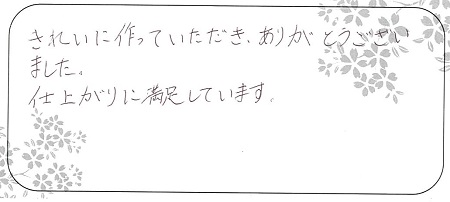 きれいに作っていただき、ありがとうござい
ました。
仕上がりに満足しています。